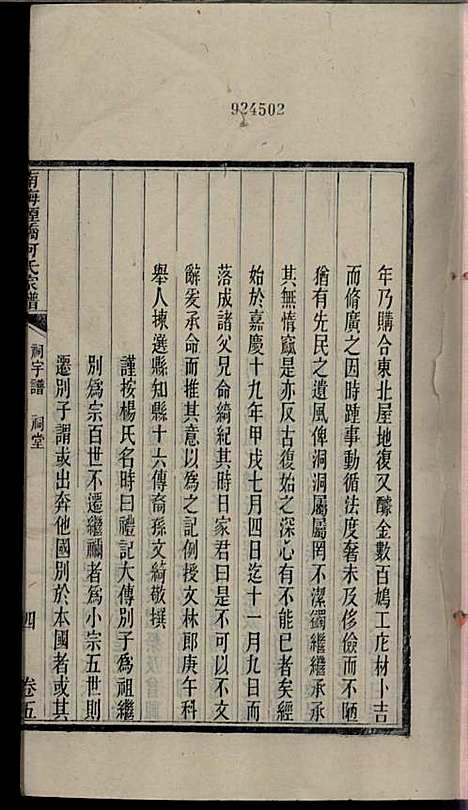 924502
年乃購合東北屋地復又醵金數百鳩工庀材卜吉
而脩廣之因時踵事動循法度奢未及侈儉而不陋
猶有先民之遺風俾洞洞屬屬罔不潔蠲繼繼承承
其無惰竄是亦反古復始之深心有不能已者矣經
始於嘉慶十九年甲戌七月四日迄十一月九日而
落成諸父兄命綺紀其時日家君曰是不可以不文
辭爰承命而推其意以為之記例授文林郎庚午科
舉人揀選縣知縣十六傳裔孫文綺敬撰
謹按楊氏名時曰禮記大傳別子為祖繼
別為宗百世不遷繼禰者為小宗五世則
遷別子謂或出奔他國別於本國者或其
南海煙橋何氏家譜
祠宇譜 祠堂
四 卷五